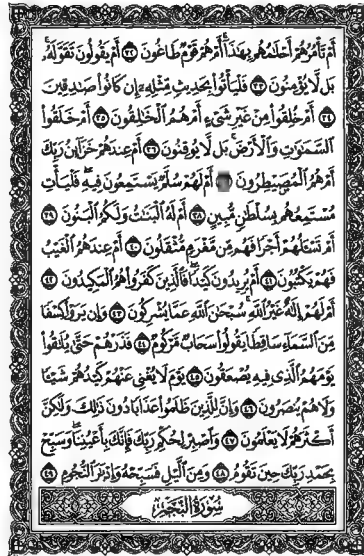 أَمْ تَأْمُرُهُمْ أَحْلَٰمُهُم بِهَٰذَآ أَمْ هُمْ قَوْمٌ طَاغُونَ ٣٢ أَمْ يَقُولُونَ تَقَوَّلَهُۥ
بَل لَّا يُؤْمِنُونَ ٣٣ فَلْيَأْتُوا۟ بِحَدِيثٍ مِّثْلِهِۦٓ إِن كَانُوا۟ صَٰدِقِينَ
٣٤ أَمْ خُلِقُوا۟ مِنْ غَيْرِ شَىْءٍ أَمْ هُمُ ٱلْخَٰلِقُونَ ٣٥ أَمْ خَلَقُوا۟
ٱلسَّمَٰوَٰتِ وَٱلْأَرْضَ بَل لَّا يُوقِنُونَ ٣٦ أَمْ عِندَهُمْ خَزَآئِنُ رَبِّكَ
أَمْ هُمُ ٱلْمُصَۣيْطِرُونَ أَمْ لَهُمْ سُلَّمٌ يَسْتَمِعُونَ فِيهِ فَلْيَأْتِ
مُسْتَمِعُهُم بِسُلْطَٰنٍ مُّبِينٍ ٣٨ أَمْ لَهُ ٱلْبَنَٰتُ وَلَكُمُ ٱلْبَنُونَ ٣٩
أَمْ تَسْـَٔلُهُمْ أَجْرًا فَهُم مِّن مَّغْرَمٍ مُّثْقَلُونَ ٤٠ أَمْ عِندَهُمُ ٱلْغَيْبُ
فَهُمْ يَكْتُبُونَ ٤١ أَمْ يُرِيدُونَ كَيْدًا فَٱلَّذِينَ كَفَرُوا۟ هُمُ ٱلْمَكِيدُونَ ٤٢
أَمْ لَهُمْ إِلَٰهٌ غَيْرُ ٱللَّهِ سُبْحَٰنَ ٱللَّهِ عَمَّا يُشْرِكُونَ ٤٣ وَإِن يَرَوْا۟ كِسْفًا
مِّنَ ٱلسَّمَآءِ سَاقِطًا يَقُولُوا۟ سَحَابٌ مَّرْكُومٌ ٤٤ فَذَرْهُمْ حَتَّىٰ يُلَٰقُوا۟
يَوْمَهُمُ ٱلَّذِى فِيهِ يُصْعَقُونَ ٤٥ يَوْمَ لَا يُغْنِى عَنْهُمْ كَيْدُهُمْ شَيْـًٔا
وَلَا هُمْ يُنصَرُونَ ٤٦ وَإِنَّ لِلَّذِينَ ظَلَمُوا۟ عَذَابًا دُونَ ذَٰلِكَ وَلَٰكِنَّ
أَكْثَرَهُمْ لَا يَعْلَمُونَ ٤٧ وَٱصْبِرْ لِحُكْمِ رَبِّكَ فَإِنَّكَ بِأَعْيُنِنَا وَسَبِّحْ
بِحَمْدِ رَبِّكَ حِينَ تَقُومُ ٤٨ وَمِنَ ٱلَّيْلِ فَسَبِّحْهُ وَإِدْبَٰرَ ٱلنُّجُومِ ٤٩
سُورَةُ النَّجْمِ